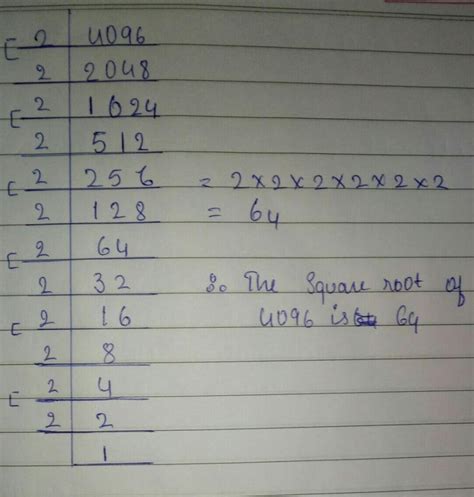 [ 2 | 4096
2 | 2048
[ 2 | 1024
2 | 512
[ 2 | 256 = 2×2×2×2×2×2
2 | 128 = 64
[ 2 | 64
2 | 32 ∴ The Square root of
[ 2 | 16 4096 is 64
2 | 8
[ 2 | 4
2 | 2
| 1